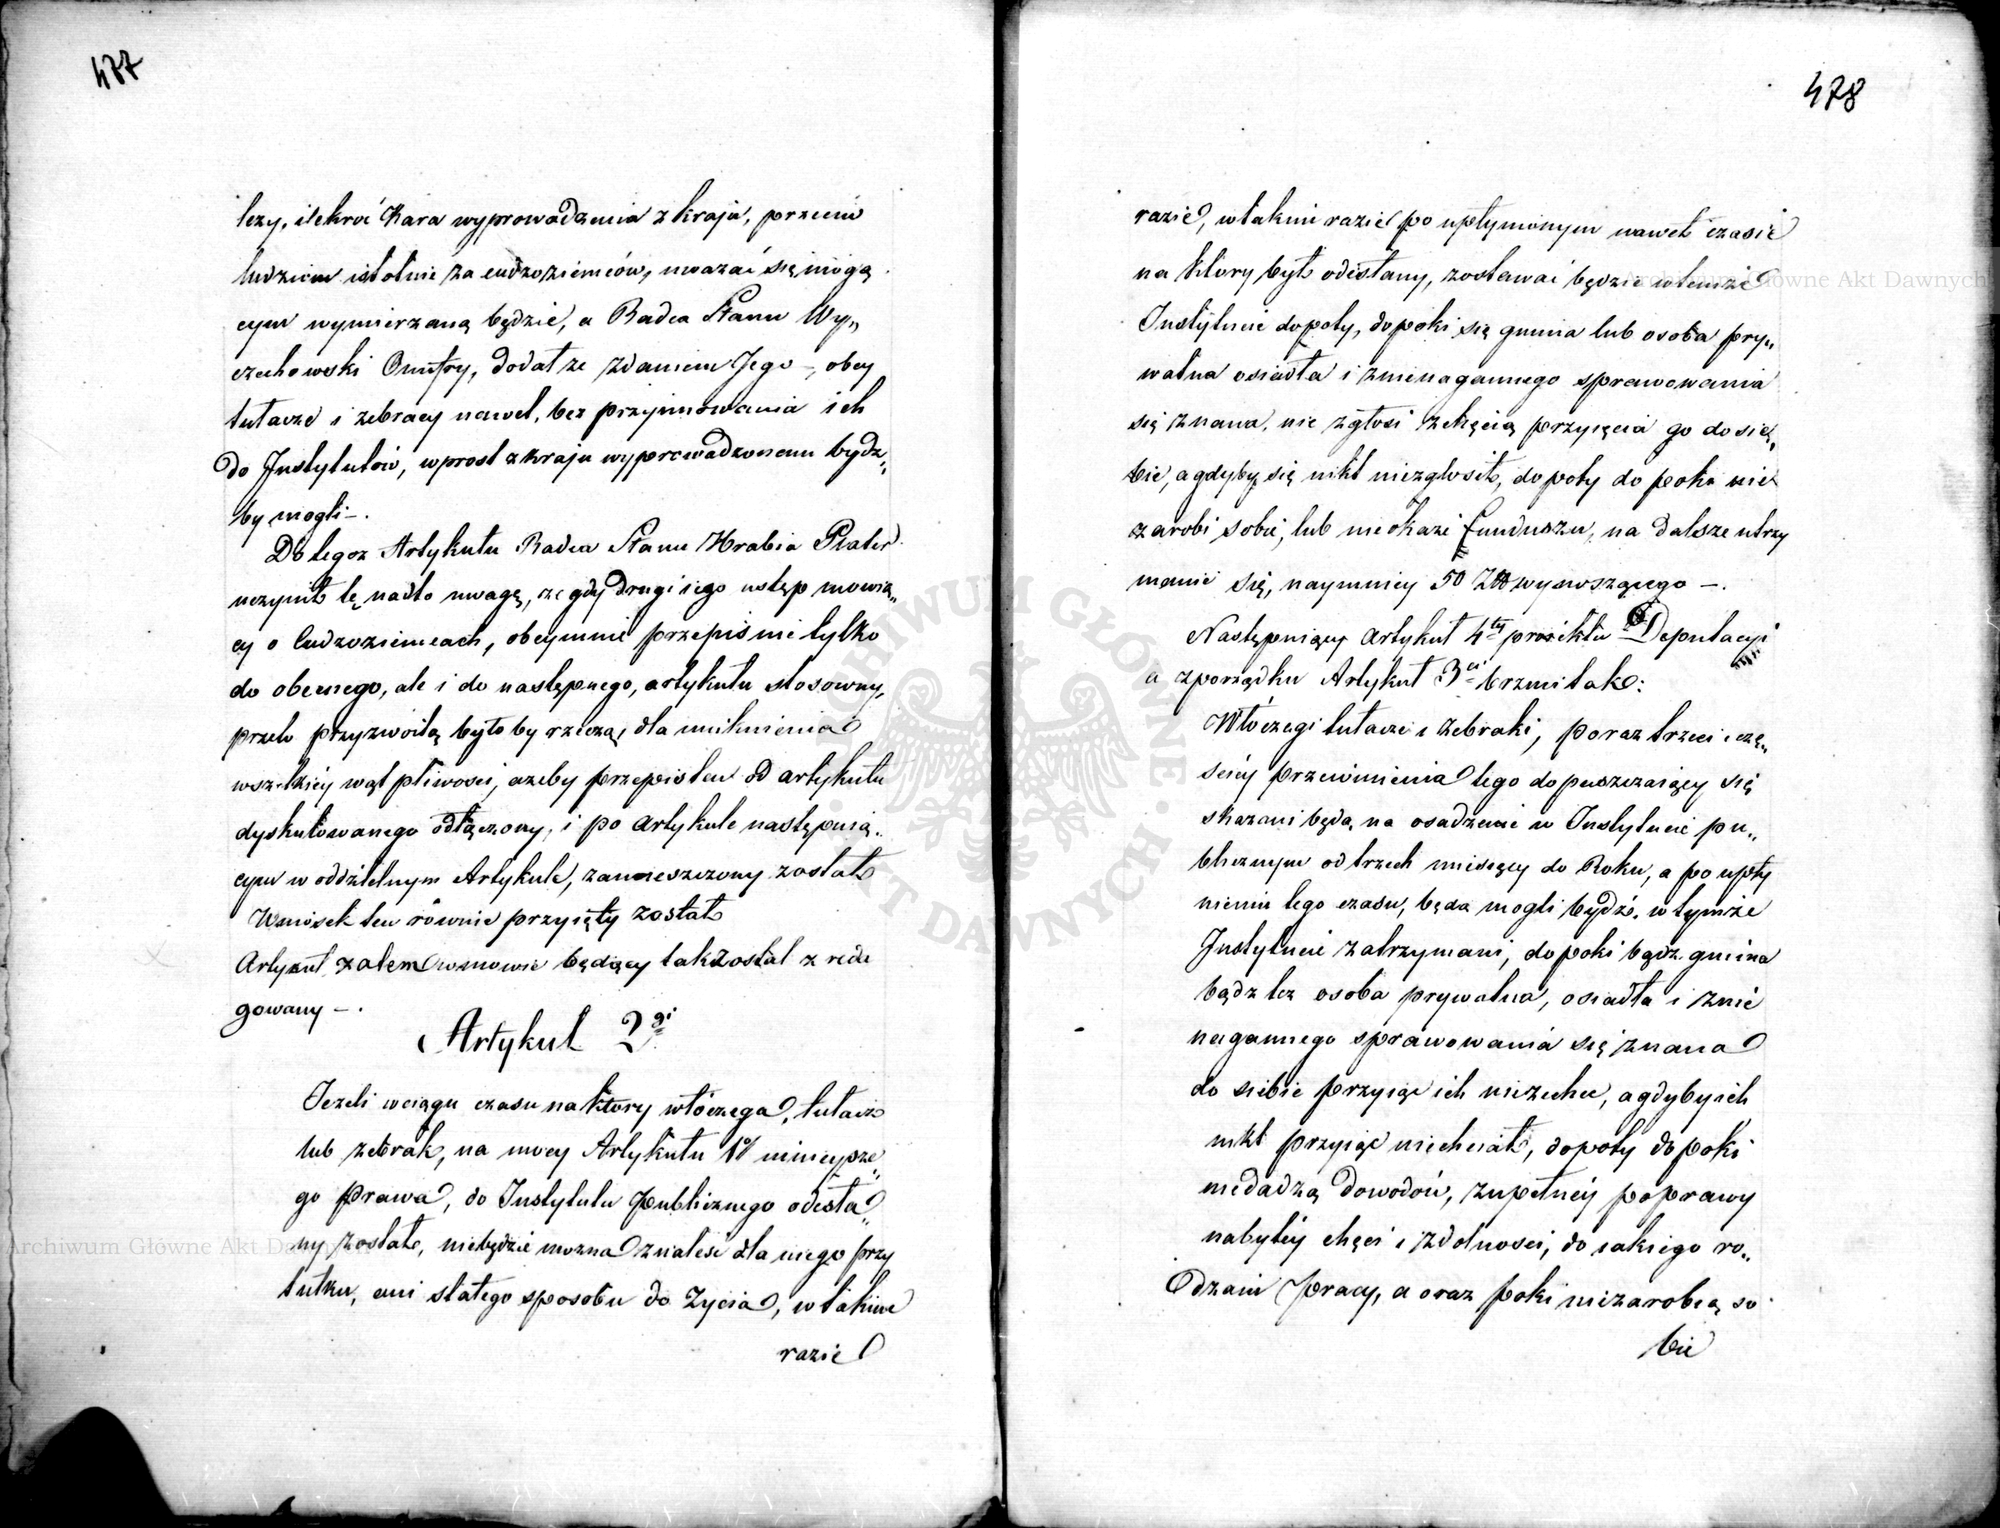 477
leży, ilekroć Kara wyprowadzenia z kraju, przeciw
ludziom istotnie za cudzoziemców, uważać się mogą
cym wymierzaną będzie, a Radca Stanu Wy„
czechowski Onufry, dodał że zdaniem Jego –, obcy
tułacze i żebracy nawet, bez przyimowania ich
do Instytutów, wprost z kraju wyprowadzonemi bydź„
by mogli –.
Do tegoż Artykułu Radca Stanu Hrabia Plater
uczynił tę nadto uwagę, że gdy drugi iego ustęp mowią„
cy o Cudzoziemcach, obeymuie przepis nie tylko
do obecnego, ale i do następnego, artykułu stosowny,
przeto przyzwoitą byłoby rzeczą, dla uniknienia
wszelkiey wątpliwości, ażeby przepis ten od artykułu
dyskutowanego odłączony, i po artykule następuią„
cym w oddzielnym Artykule, zamieszczony został
Wniosek ten równie przyięty został
Artykuł zatem w mowie będący tak został z reda
gowany –.
Artykuł 2gi
Jeżeli w ciągu czasu na który włóczęga, tułacz
lub żebrak, na mocy Artykułu 1o ninieysze„
go Prawa, do Instytutu Publicznego odesła„
ny został, niebędzie można znaleść dla niego przy
tułku, ani stałego sposobu do Życia, w takim
razie
478
razie, w takim razie po upłynionym nawet czasie
na który był odesłany, zostawać będzie w temże
Instytucie dopóty, dopóki się gmina lub osoba pry„
watna osiadła i z nienagannego sprawowania
się znana, nie zgłosi z chęcią przyięcia go do sie„
bie, a gdyby się nikt niezgłosił, dopóty dopóki nie
zarobi sobie, lub nieokaże funduszu, na dalsze utrzy
manie się, naymniey 50 Złł wynoszącego –.
Następuiący artykuł 4ty proiektu Deputacyi
a z porządku Artykuł 3ci brzmi tak:
Włóczęgi tułacze i żebraki, poraz trzeci i czę„
ściey przewinienia tego dopuszczaiący się
skazani będą, na osadzenie w Instytucie pu„
blicznym od trzech miesięcy do Roku, a po upły
nieniu tego czasu, będą mogli bydź, w tymże
Instytucie zatrzymani, dopóki bądź gmina
bądź też osoba prywatna, osiadła i z nie
nagannego sprawowania się znana
do siebie przyiąć ich niezechce, a gdyby ich
nikt przyiąć niechciał, dopóty dopóki
niedadzą dowodów, zupełney poprawy
nabytey chęci i zdolności, do iakiego ro„
dzaiu Pracy, a oraz póki niezarobią so
bie